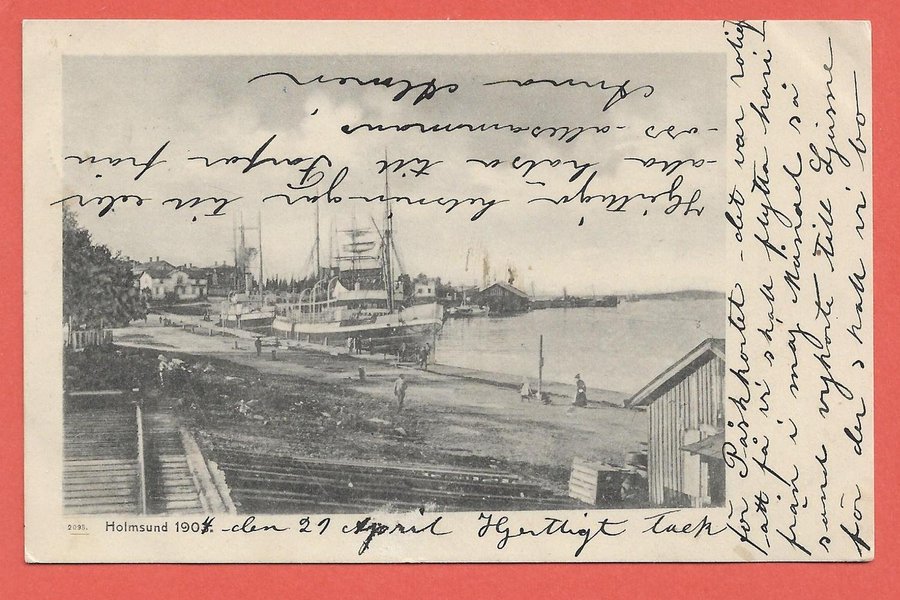 2093. Holmsund 1904. den 27 April Hjertligt Tack
för Påskkortet det var roligt
att få vi skall flytta härif
från i maj Månad så
samt till Ljusne
för der skall vi bo
Hjertliga helsningar till eder
alla helsa till Farfar från
oss allesammans
Anna Almén